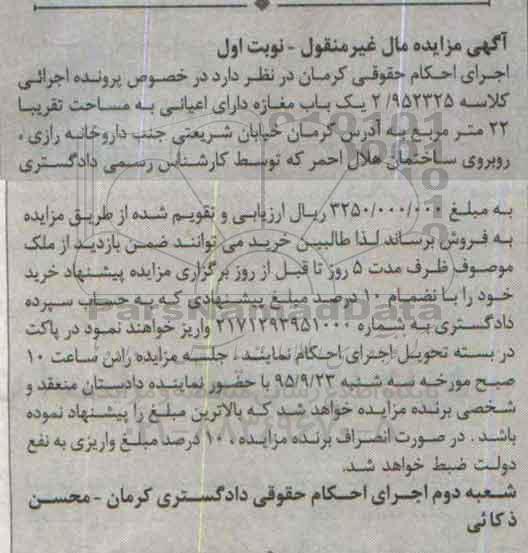 آگهی مزایده مال غیرمنقول - نوبت اول
اجرای احکام حقوقی کرمان در نظر دارد در خصوص پرونده اجرائی
کلاسه ۲/۹۵۲۳۲۵ یک باب مغازه دارای اعیانی به مساحت تقریبا
۲۲ متر مربع به آدرس کرمان خیابان شریعتی جنب داروخانه رازی ،
روبروی ساختمان هلال احمر که توسط کارشناس رسمی دادگستری
به مبلغ ۳۲۵۰/۰۰۰/۰۰۰ ریال ارزیابی و تقویم شده از طریق مزایده
به فروش برساند لذا طالبین خرید می توانند ضمن بازدید از ملک
موصوف ظرف مدت ۵ روز تا قبل از روز برگزاری مزایده پیشنهاد خرید
خود را با نضمام ۱۰ درصد مبلغ پیشنهادی که به حساب سپرده
دادگستری به شماره ۲۱۷۱۲۹۳۹۵۱۰۰۰ واریز خواهند نمود در پاکت
در بسته تحویل اجرای احکام نمایند ، جلسه مزایده راس ساعت ۱۰
صبح مورخه سه شنبه ۹۵/۹/۲۳ با حضور نماینده دادستان منعقد و
شخصی برنده مزایده خواهد شد که بالاترین مبلغ را پیشنهاد نموده
باشد . در صورت انصراف برنده مزایده ، ۱۰ درصد مبلغ واریزی به نفع
دولت ضبط خواهد شد.
شعبه دوم اجرای احکام حقوقی دادگستری کرمان - محسن
ذکائی
ParsNamadData